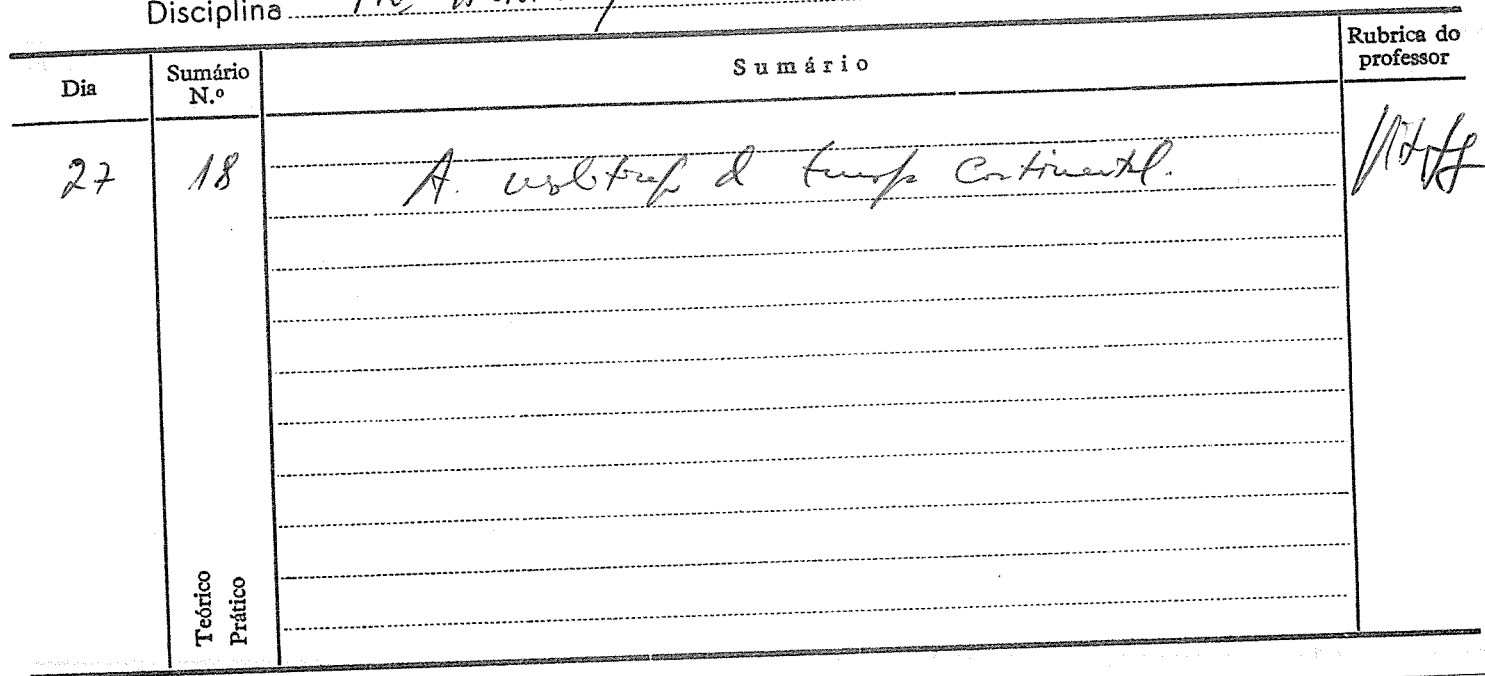 Disciplina
Dia
Sumário N.º
Sumário
Rubrica do professor
27
18
A Continental.
Teórico
Prático